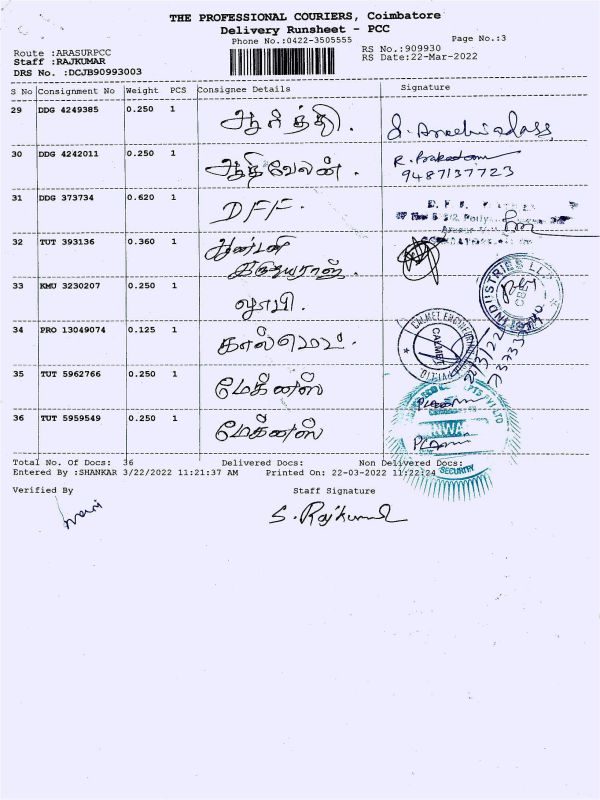 THE PROFESSIONAL COURIERS, Coimbatore
Delivery Runsheet - PCC
Phone No.:0422-3505555
Page No.:3
Route :ARASURPCC
RS No.:909930
Staff :RAJKUMAR
RS Date:22-Mar-2022
DRS No. :DCJB90993003
S No Consignment No Weight PCS Consignee Details Signature
29 DDG 4249385 0.250 1 ஆர்த்தி.
30 DDG 4242011 0.250 1 ஆதிவேலன்.
R. Prakadam
9487137723
31 DDG 373734 0.620 1 DFF.
32 TUT 393136 0.360 1
33 KMU 3230207 0.250 1
34 PRO 13049074 0.125 1 கால்மெட்.
35 TUT 5962766 0.250 1 மேக்னஸ்
36 TUT 5959549 0.250 1 மேக்னஸ்
CALMET ENGINEERING
CALMET
INDUSTRIES LLP
SECURITY
Total No. Of Docs: 36 Delivered Docs: Non Delivered Docs:
Entered By :SHANKAR 3/22/2022 11:21:37 AM Printed On: 22-03-2022 11:22:24
Verified By Staff Signature
S. Rajkumar